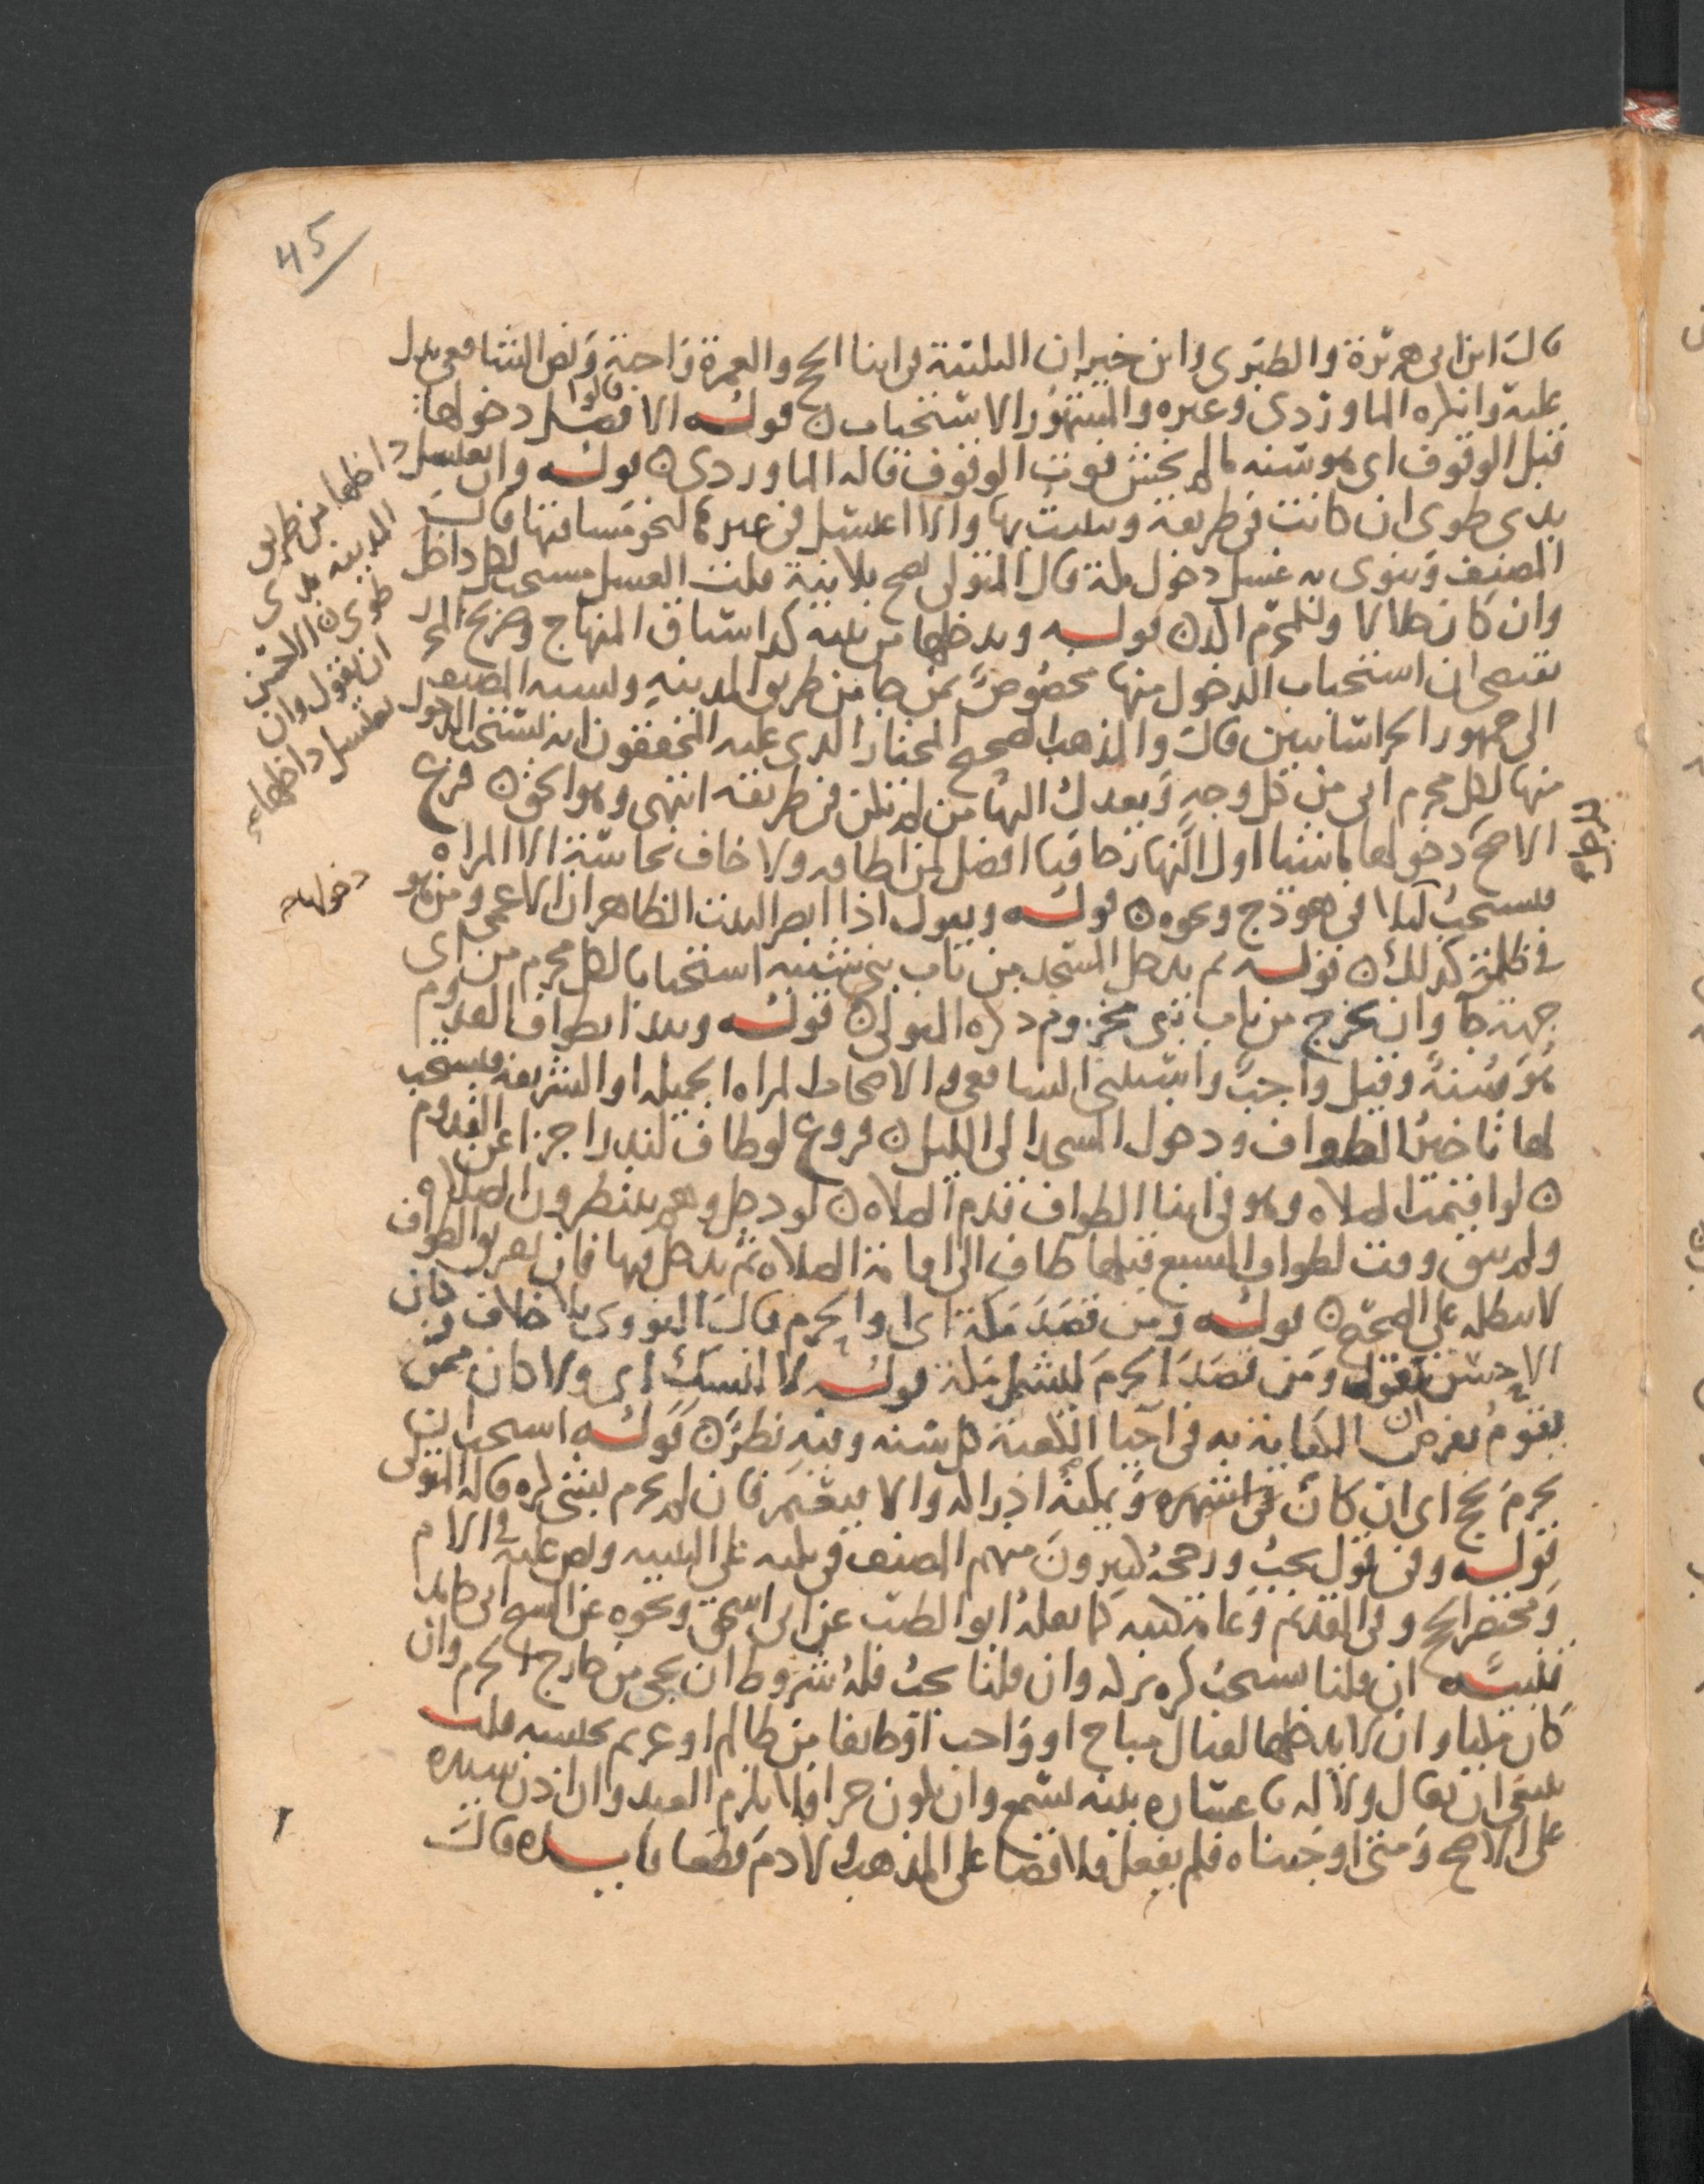 45
قال ابن ابي هريرة والطبري وابن خيران التلبية في اثنا الحج والعمرة واجبة ونص الشافعي يدل
عليه وانكره الماوردي وغيره والمشهور الاستحباب ن قوله الافضل دخولها
قالوا
قبل الوقوف اي هو سنه مالم يخش فوت الوقوف قاله الماوردي ن قوله وان يغتسل داخلها من طريق
المدينه بذي
طوى ن الاحسن
ان يقول وان
يغتسل داخلها
بذي طوى ان كانت في طريقه ويبيت بها والا اغتسل في غيرها لنحو مسافتها قال
المصنف وينوي به غسل دخول مكة قال المتولي يصح بلا نية قلت الغسل مستحب لكل داخل
وان كان حلالا ولمحرم اكد ن قوله ويدخلها من ثنيه كدا سياق المنهاج وصريح المحرر
يقتضي ان استحباب الدخول منها مخصوص بمن جا من طريق المدينه ونسبه المصنف
الى جمهور الخراسانيين قال والمذهب الصحيح المختار الذي عليه المحققون انه يستحب الدخول
منها لكل محرم اتى من كل وجه ويعدل اليها من لم تكن في طريقه انتهى وهو الحق ن فرع
الاصح دخولها ماشيا اول النهار حافيا افضل لمن اطاقه ولا خاف نجاسته الا المراه
دخوله
فيستحب ليلا في هودج ونحوه ن قوله ويقول اذا ابصر البيت الظاهر ان الاعمى ومن هو
في ظلمة كذلك ن قوله ثم يدخل المسجد من باب بني شيبه استحبابا لكل محرم من اي
جهة جا وان يخرج من باب بني مخزوم ذكره المتولي ن قوله ويبدا بطواف القدوم
هو سنة وقيل واجب واستثنى الشافعي والاصحاب المراه الجميله او الشريفه فيستحب
لها تاخير الطواف ودخول المسجد الى الليل ن فروع لو طاف لنذر اجزا عن القدوم
ن لو اقيمت الصلاه وهو في اثنا الطواف قدم الصلاه ن لو دخل وهم ينتظرون الصلاه
ولم يبق وقت لطواف السبع قبلها طاف الى اقامة الصلاه ثم يدخل فيها فان تفريق الطواف
لا يبطله على الصحيح ن قوله ومن قصد مكة اي او الحرم قال النووي بلا خلاف فكان
الاحسن يقول ومن قصد الحرم ليشمل مكة قوله لا لنسك اي ولا كان ممن
يقوم بفرض الكفاية به في احيا الكعبة كل سنه وفيه نظر ن قوله استحب ان
يحرم بحج اي ان كان في اشهره ويمكنه ادراكه والا فبعمرة فان لم يحرم بشي كره قاله المتولي
قوله وفي قول يجب ورجحه كثيرون منهم المصنف في نكته على التنبيه ونص عليه في الام
ومختصر الحج وفي القديم وعامة كتبه كما نقله ابو الطيب عن ابي اسحق ونحوه عن الشيخ ابي حامد
تنبيه ان قلنا يستحب كره تركه وان قلنا يجب فله شروط ان يجي من خارج الحرم وان
كان مكيا وان لا يدخلها لقتال مباح او واجب او خايفا من ظالم او غريم يحبسه قلت
ينبغي ان يقال ولا له اعساره بينه تسمع وان يكون حرا فلا يلزم العبد وان اذن سيده
على الاصح ومتى اوجبناه فلم يفعل فلا قضا على المذهب ولا دم قطعا فايده قال